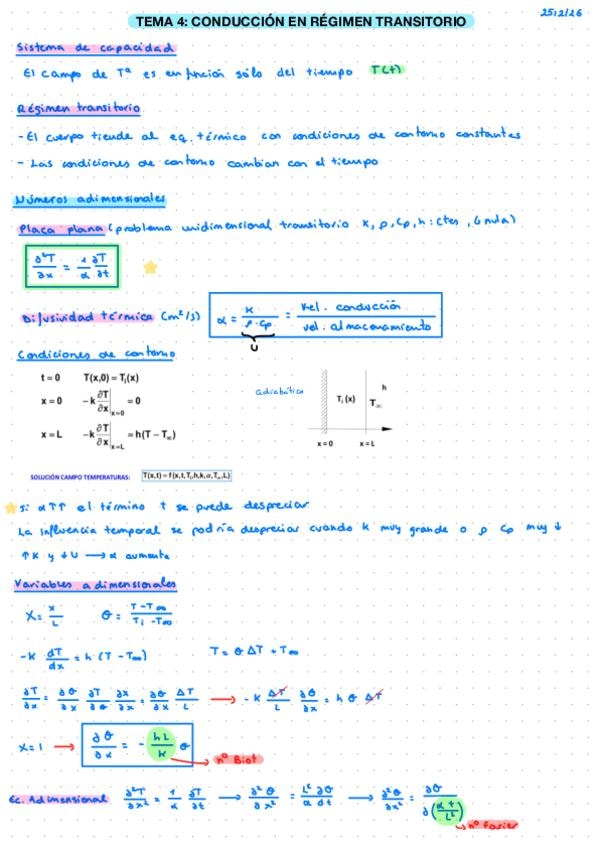 TEMA 4: CONDUCCIÓN EN RÉGIMEN TRANSITORIO
25/2/26
Sistema de capacidad
El campo de Tª es en función sólo del tiempo T(t)
Régimen transitorio
- El cuerpo tiende al eq. térmico con condiciones de contorno constantes
- Las condiciones de contorno cambian con el tiempo
Números adimensionales
Placa plana (problema unidimensional transitorio k, ρ, Cp, h: ctes, G nula)
∂²T/∂x = 1/α ∂T/∂t
Difusividad térmica (m²/s) α = k/ρ·Cp = vel. conducción/vel. almacenamiento
U
Condiciones de contorno
t = 0 T(x,0) = Tᵢ(x)
x = 0 -k ∂T/∂x|x=0 = 0
x = L -k ∂T/∂x|x=L = h(T - T∞)
adiabática
Tᵢ (x)
h
T∞
x = 0 x = L
SOLUCIÓN CAMPO TEMPERATURAS: T(x,t) = f(x,t,Tᵢ,h,k,α,T∞,L)
Si α↑↑ el término t se puede despreciar
La influencia temporal se podría despreciar cuando k muy grande o ρ Cp muy ↓
↑K y ↓U → α aumenta
Variables adimensionales
X = x/L θ = T - T∞/Ti - T∞
-k dT/dx = h (T - T∞) T = θ ΔT + T∞
∂T/∂x = ∂θ/∂x ∂T/∂θ ∂x/∂x = ∂θ/∂x ΔT/L → -k ΔT/L ∂θ/∂x = h θ ΔT
x = 1 → ∂θ/∂x = - hL/k θ
nº Biot
Ec. Adimensional ∂²T/∂x² = 1/α ∂T/∂t → ∂²θ/∂x² = L²/α ∂θ/dt → ∂²θ/∂x² = ∂θ/∂(αt/L²)
nº Forier